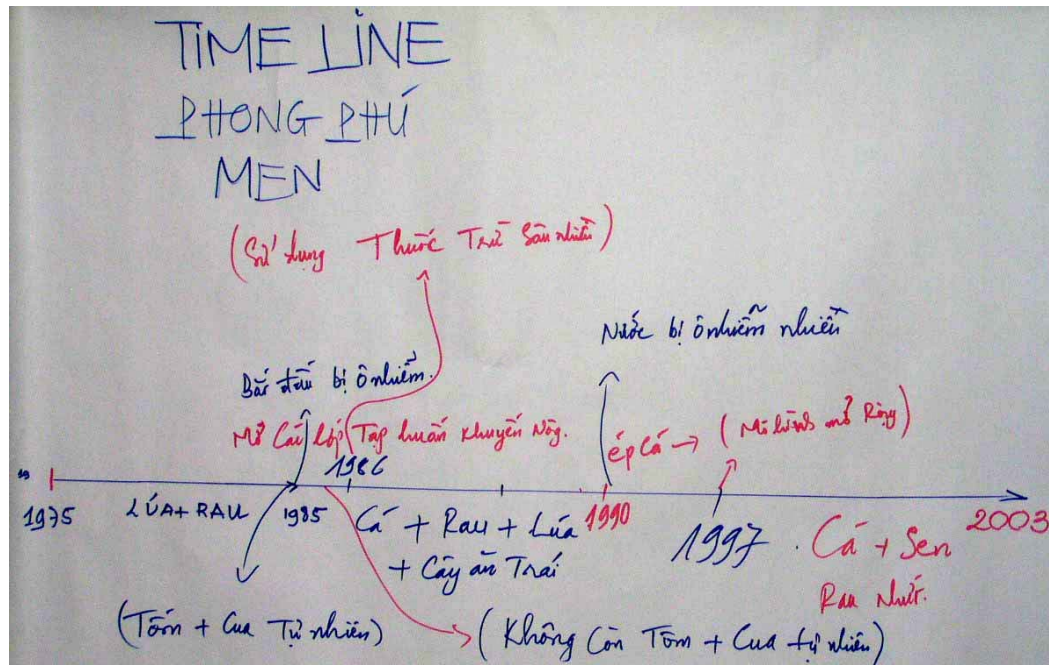 TIME LINE
PHONG PHÚ
MEN
(Sử dụng Thuốc Trừ Sâu nhiều)
Nước bị ô nhiễm nhiều
Bắt đầu bị ô nhiễm.
Mở Các lớp Tập huấn Khuyến Nông.
ép Cá → (Mô hình mở Rộng)
1986
1975
LÚA + RAU
1985
Cá + Rau + Lúa
+ Cây ăn Trái
1990
1997
Cá + Sen
Rau Nhút.
2003
(Tôm + Cua Tự nhiên)
(Không Còn Tôm + Cua tự nhiên)